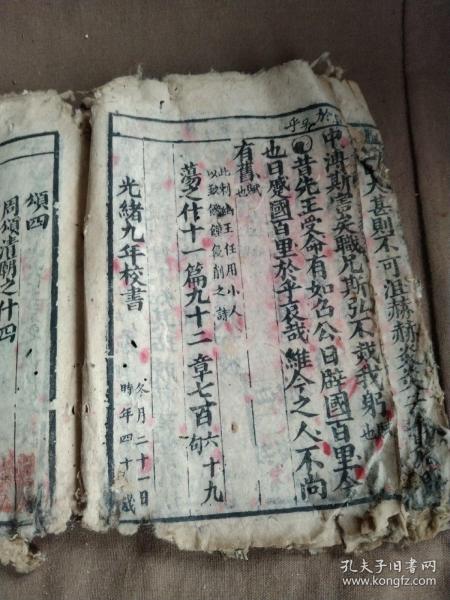 大甚則不可沮赫赫炎炎
中溥斯害矣職兄斯弘不烖我躬
賦也
於乎
昔先王受命有如召公日辟國百里今
也日蹙國百里於乎哀哉維今之人不尚
有舊
賦也
此刺幽王任用小人
以致饑饉侵削之詩
蕩之什十一篇九十二章七百六十九
句
光緒九年校書
冬月二十一日
時年四十歲
頌四
周頌清廟之什四
孔夫子旧书网
www.kongfz.com